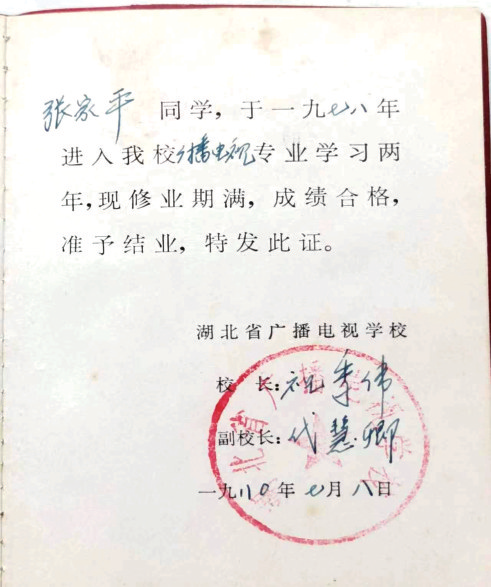 张家平 同学，于一九七八年
进入我校广播电视专业学习两
年，现修业期满，成绩合格，
准予结业，特发此证。
湖北省广播电视学校
校长：祝季伟
副校长：代慧卿
一九八〇年七月八日
湖北省广播电视学校